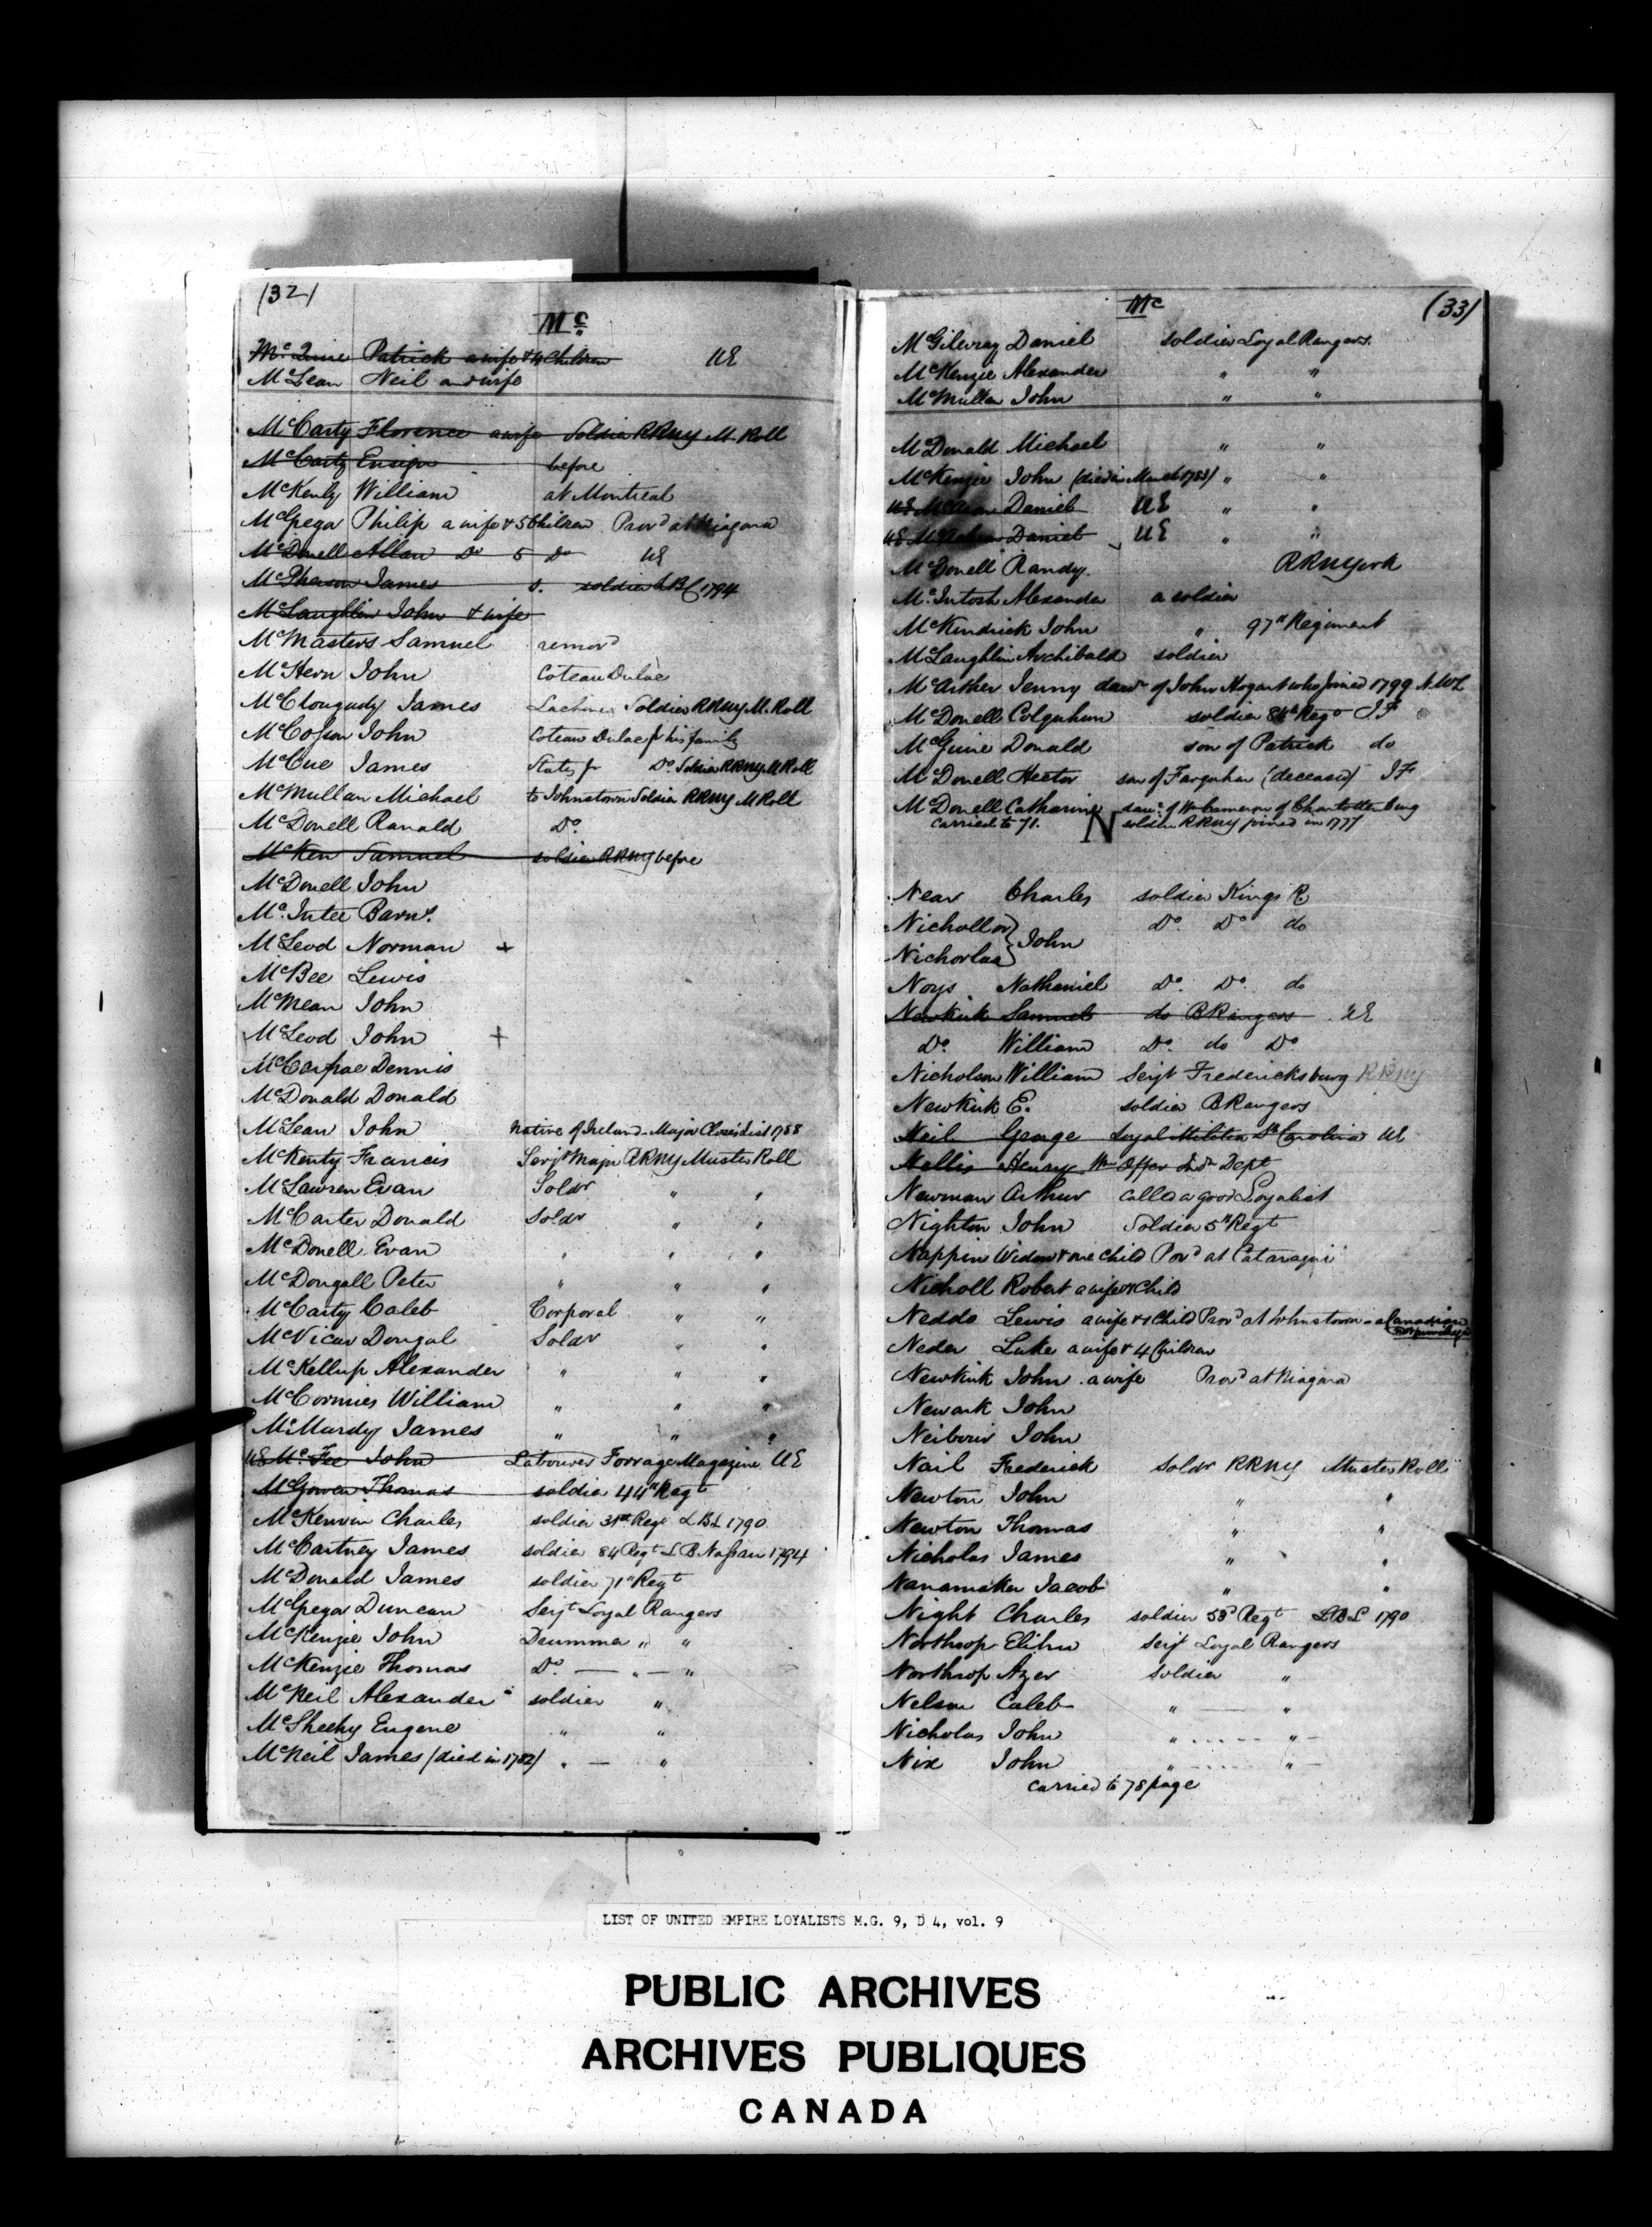 (32)
Mc
McLean Neil and wife
McCarty Florence a wife Soldier RRNY M. Roll
McCarty Ensign before
McKenly William at Montreal
McGregor Philip a wife & 5 Children Provd at Niagara
McDonell Allan Do 5 Do UE
McPherson James s. soldier 1794
McLaughlin John & wife
McMasters Samuel removd
McHern John Coteau Dulac
McClougudy James Lachine Soldier RRNY M. Roll
John Coteau Dulac his family
McCue James States Do. Soldier RRNY M Roll
McMullan Michael to Johnstown Soldier RRNY M Roll
McDonell Ranald Do.
McKen Samuel soldier RRNY before
McDonell John
McIntee Barny.
McLeod Norman +
McBee Lewis
McMean John
McLeod John +
Dennis
McDonald Donald
McLean John Native of Ireland. Major Closes list 1788
McKenty Francis Serjt Major RRNY Muster Roll
McLawren Evan Soldr " "
McCarter Donald Soldr " "
McDonell Evan " " "
McDougall Peter " " "
McCarty Caleb Corporal " "
McVicar Dougal Soldr " "
McKellup Alexander " " "
McCormies William " " "
McMurdy James " " "
UE McFee John Labourer Forrage Magazine UE
McGowen Thomas soldier 44th Regt
McKenvin Charles soldier 31st Regt LBL 1790
McCartney James soldier 84 Regt L B Nassau 1794
McDonald James soldier 71st Regt
McGregor Duncan Serjt Loyal Rangers
McKenzie John Drummer " "
McKenzie Thomas Do. — " — "
McNeil Alexander soldier "
McSheehy Eugene " "
McNeil James (died in 1782) " — "
Mc (33)
McGilevray Daniel soldier Loyal Rangers.
McKenzie Alexander " "
McMullen John " "
McDonald Michael " "
McKenzie John (died in March 1783) " "
UE Daniel UE " "
UE Daniel UE " "
McDonell Randy. RRNYork
McIntosh Alexander a soldier
McKendrick John " 97th Regiment
McLaughlin Archibald soldier
McArther Jenny daur of John Hogart who joined 1799 N.W.L
McDonell Colquhun soldier 84th Regt IF
McGuire Donald son of Patrick do
McDonell Hector son of Farquhar (deceased) IF
McDonell Catharine daur. of Wm Cameron of Charlottenburg
carried to 71. soldier RRNY joined in 1777
N
Near Charles soldier Kings R
Nicholl or } John Do. Do do
Nichorlas }
Noys Nathaniel Do. Do. do
Newkirk Samuel do B Rangers UE
Do. William Do. do Do.
Nicholson William Serjt Fredericksburg RRNY
Newkirk E. soldier B Rangers
Neil George Loyal Militia So Carolina UE
Nellis Henry Wm Offer Indn Dept
Newman Arthur called a good Loyalist
Nighton John Soldier 5th Regt
Nappin Widow & one child Provd at Cataraqui
Nicholl Robert a wife & Child
Neddo Lewis a wife & 1 Child Provd at Johnstown - a Canadian
Neder Luke a wife & 4 Children
Newkirk John a wife Provd at Niagara
Newark John
Neibouis John
Nail Frederick Soldr RRNY Muster Roll
Newton John " "
Newton Thomas " "
Nicholas James " "
Nanamaker Jacob " "
Night Charles soldier 53d Regt LBL 1790
Northrop Elihu Serjt Loyal Rangers
Northrop Azer Soldier "
Nelson Caleb " — "
Nicholas John " "
Nix John " "
carried to 78 page
LIST OF UNITED EMPIRE LOYALISTS M.G. 9, D 4, vol. 9
PUBLIC ARCHIVES
ARCHIVES PUBLIQUES
CANADA